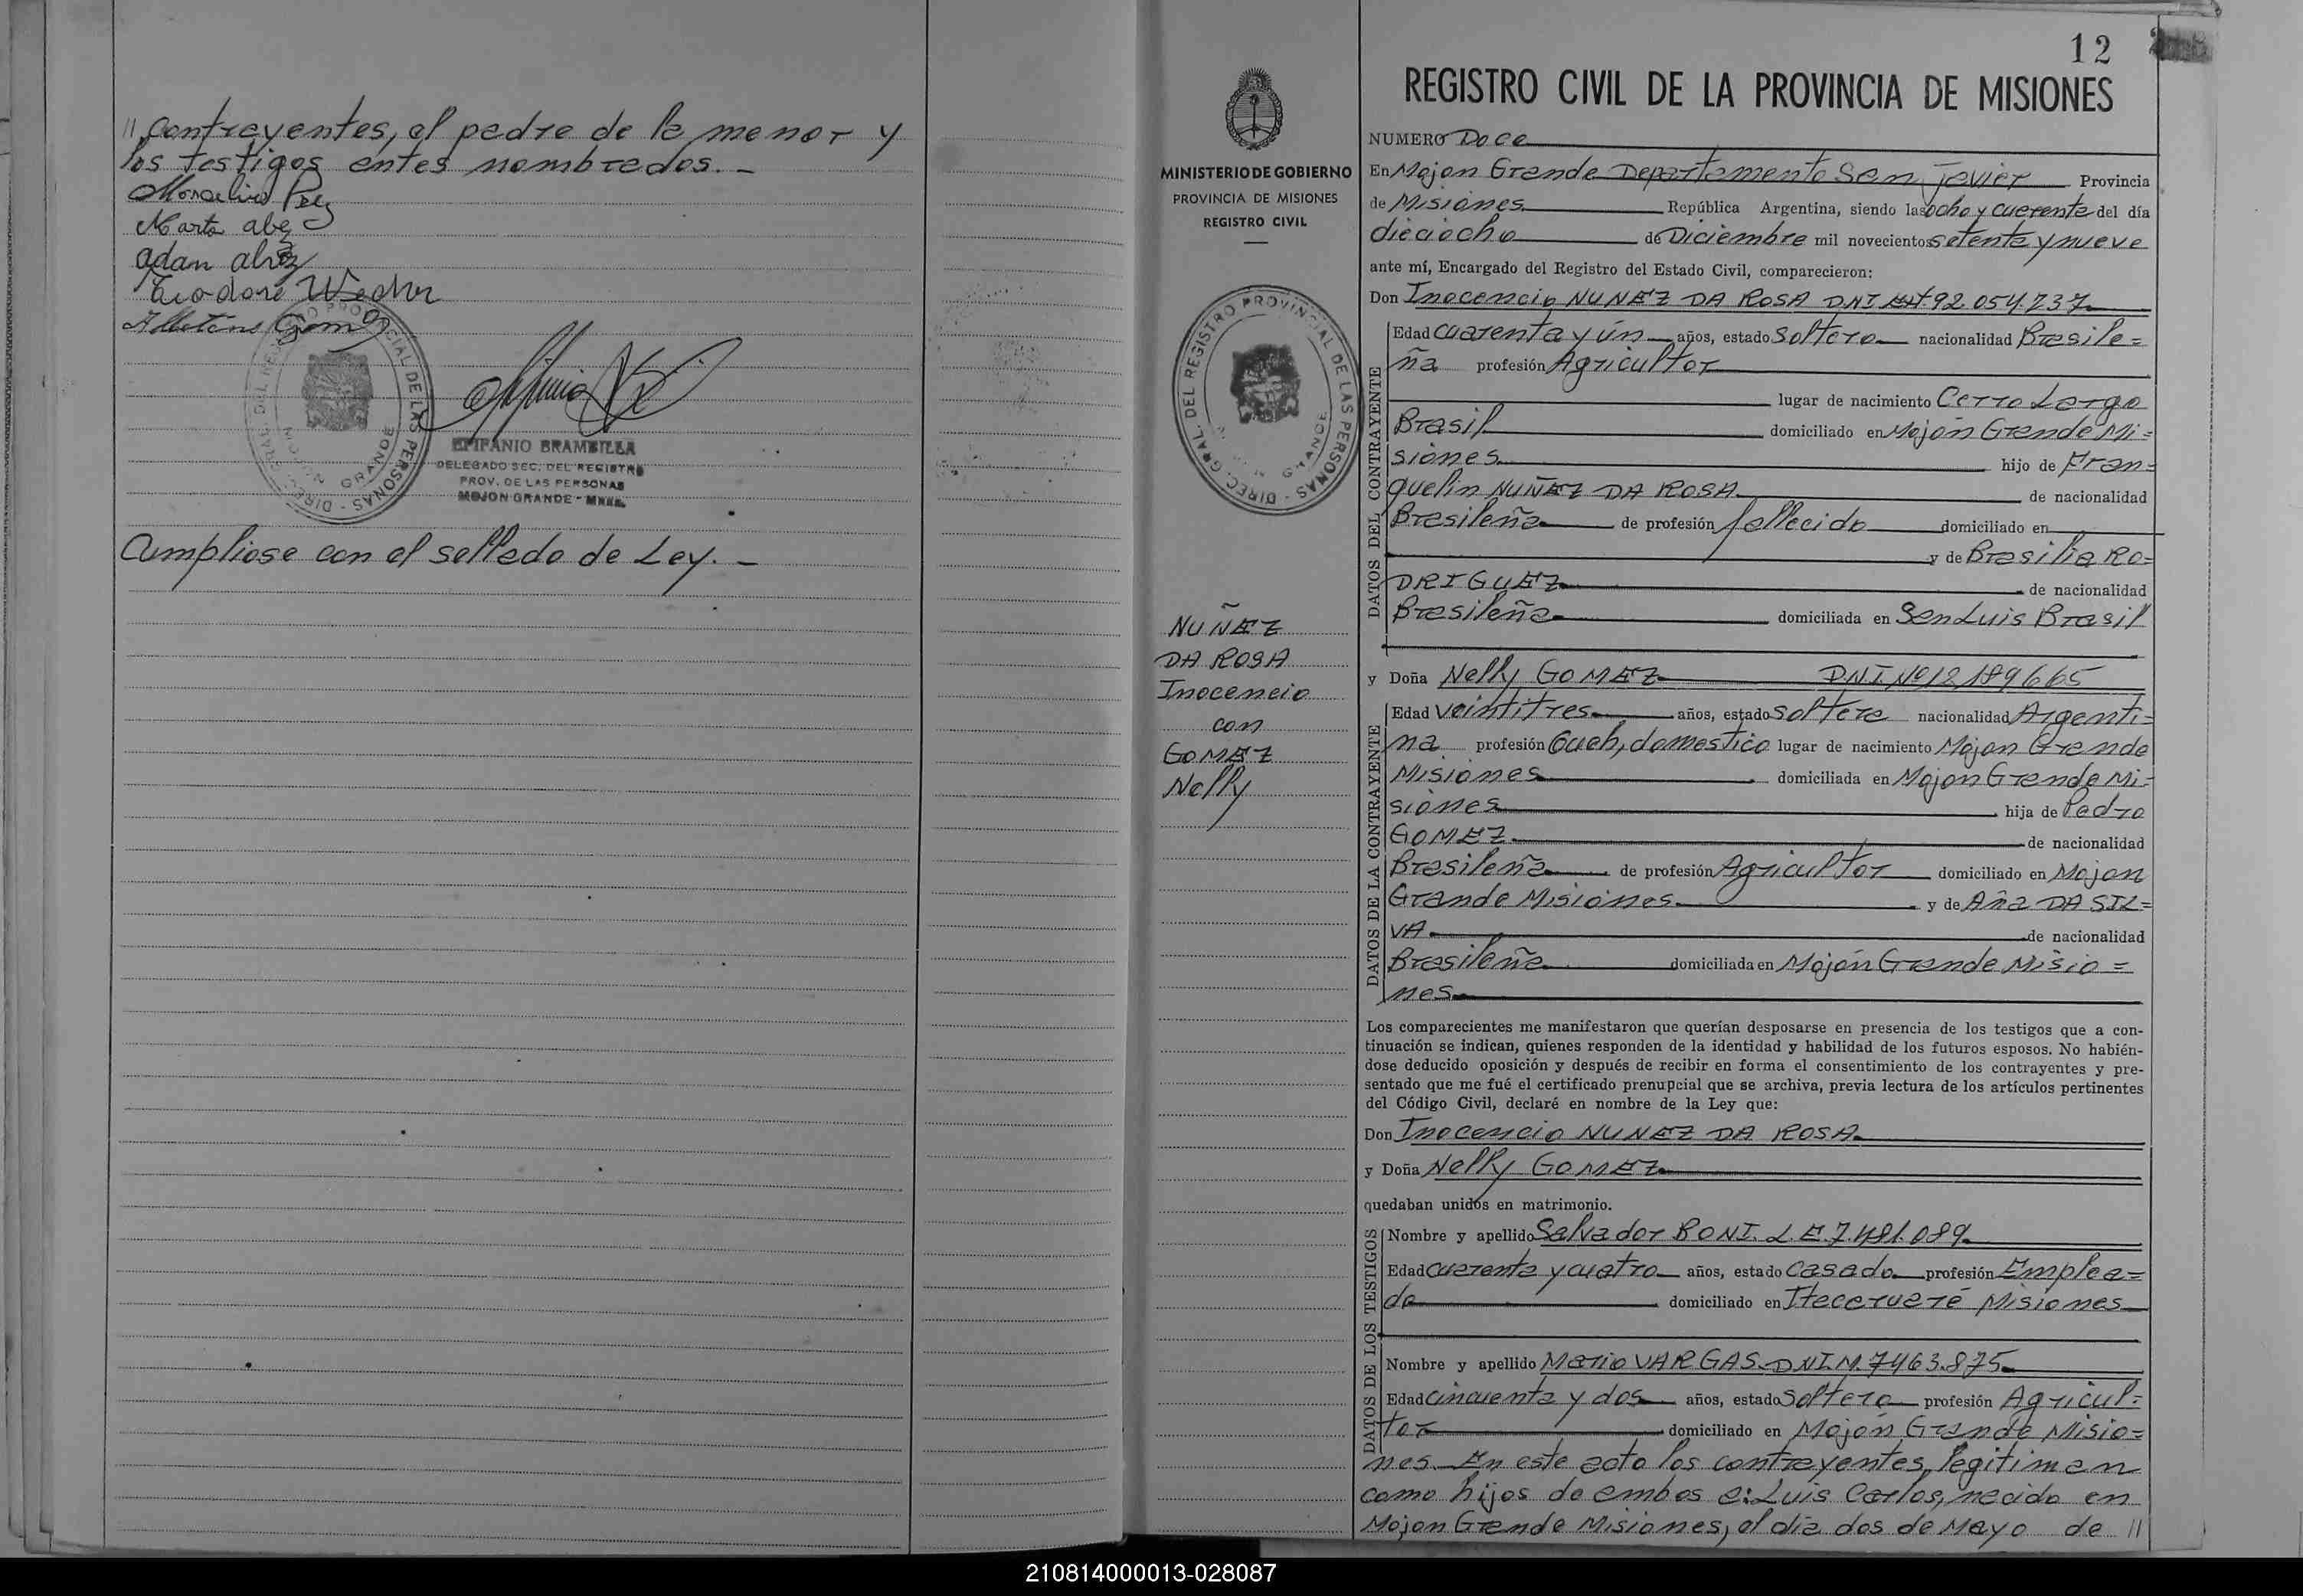 // contrayentes, el padre de la menor y
los testigos antes nombrados. -
Marta
adan
Teodoro
Gomez
DIREC. GRAL. DEL REGISTRO PROVINCIAL DE LAS PERSONAS
MOJON GRANDE
EPIFANIO BRAMBILLA
DELEGADO SEC. DEL REGISTRO
PROV. DE LAS PERSONAS
MOJON GRANDE - Mnes.
Cumpliose con el sellado de Ley. -
12
MINISTERIO DE GOBIERNO
PROVINCIA DE MISIONES
REGISTRO CIVIL
DIREC. GRAL. DEL REGISTRO PROVINCIAL DE LAS PERSONAS
MOJON GRANDE
NUÑEZ
DA ROSA
Inocencio
con
GOMEZ
Nelly
REGISTRO CIVIL DE LA PROVINCIA DE MISIONES
NUMERO Doce
En Mojon Grande Departamento San Javier Provincia
de Misiones República Argentina, siendo las ocho y cuarenta del día
dieciocho de Diciembre mil novecientos setenta y nueve
ante mí, Encargado del Registro del Estado Civil, comparecieron:
Don Inocencio NUNEZ DA ROSA DNI Ext. 92.054.237
DATOS DEL CONTRAYENTE
Edad cuarenta y ún años, estado soltero nacionalidad Brasile=
ña profesión Agricultor
lugar de nacimiento Cerro Largo
Brasil domiciliado en Mojón Grande Mi=
siones hijo de Fran=
quelin NUÑEZ DA ROSA de nacionalidad
Brasileña de profesión fallecido domiciliado en
y de Brasilia RO=
DRIGUEZ de nacionalidad
Brasileña domiciliada en San Luis Brasil
y Doña Nelly GOMEZ DNI Nº 12.189665
DATOS DE LA CONTRAYENTE
Edad veintitres años, estado soltera nacionalidad Argenti=
na profesión Queh, domestico lugar de nacimiento Mojon Grande
Misiones domiciliada en Mojon Grande Mi=
siones hija de Pedro
GOMEZ de nacionalidad
Brasileña de profesión Agricultor domiciliado en Mojon
Grande Misiones y de Ana DA SIL=
VA de nacionalidad
Brasileña domiciliada en Mojón Grande Misio=
nes
Los comparecientes me manifestaron que querían desposarse en presencia de los testigos que a con-
tinuación se indican, quienes responden de la identidad y habilidad de los futuros esposos. No habién-
dose deducido oposición y después de recibir en forma el consentimiento de los contrayentes y pre-
sentado que me fué el certificado prenupcial que se archiva, previa lectura de los artículos pertinentes
del Código Civil, declaré en nombre de la Ley que:
Don Inocencio NUNEZ DA ROSA
y Doña Nelly GOMEZ
quedaban unidos en matrimonio.
DATOS DE LOS TESTIGOS
Nombre y apellido Salvador BONI. L.E. 7.481.089
Edad cuarenta y cuatro años, estado casado profesión Emplea=
do domiciliado en Itacaruaré Misiones
Nombre y apellido Mario VARGAS. DNI.M. 7463.875
Edad cincuenta y dos años, estado soltero profesión Agricul=
tor domiciliado en Mojón Grande Misio=
nes. En este acto los contrayentes, legitiman
como hijos de ambos a: Luis Carlos, nacido en
Mojon Grande Misiones, el día dos de Mayo de //
210814000013-028087